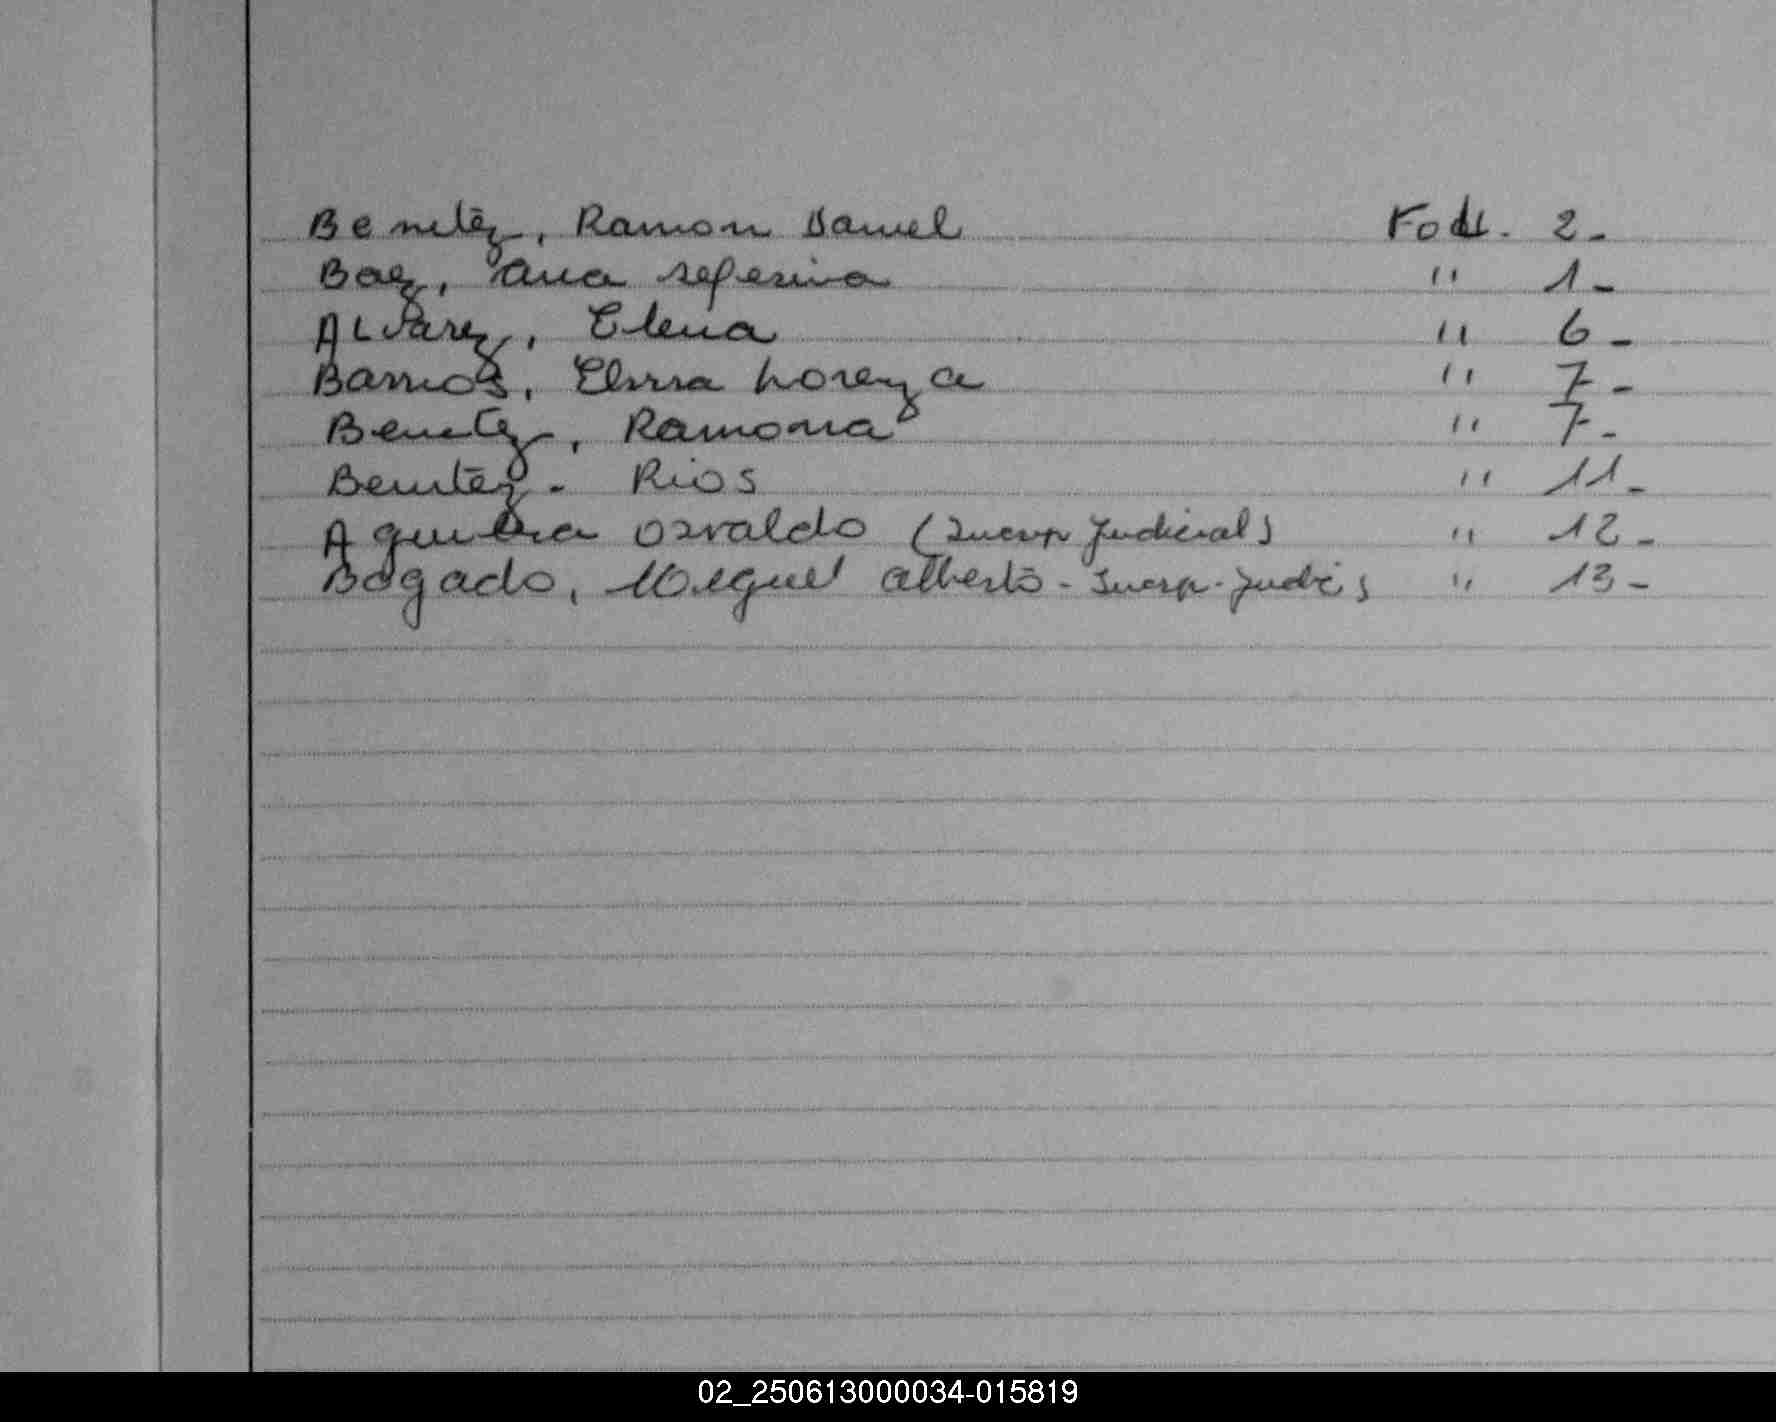 Benitez, Ramon Daniel Fodt. 2-
Baez, Ana seferina " 1-
ALvarez, Elena " 6-
Barrios, Elvira Lorenza " 7-
Benitez, Ramona " 7-
Benitez- Rios " 11-
Aguilera Osvaldo (Inscrip Judicial) " 12-
Bogado, Miguel Alberto- Inscrip. Judic; " 13-
02_250613000034-015819